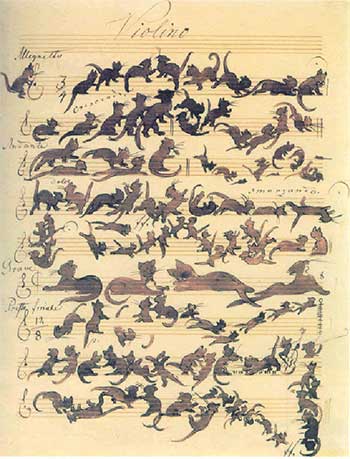 Violino
Allegretto
3
4
crescendo
Andante
dolce
smorzando
Grave
Presto finale
12
8
p.